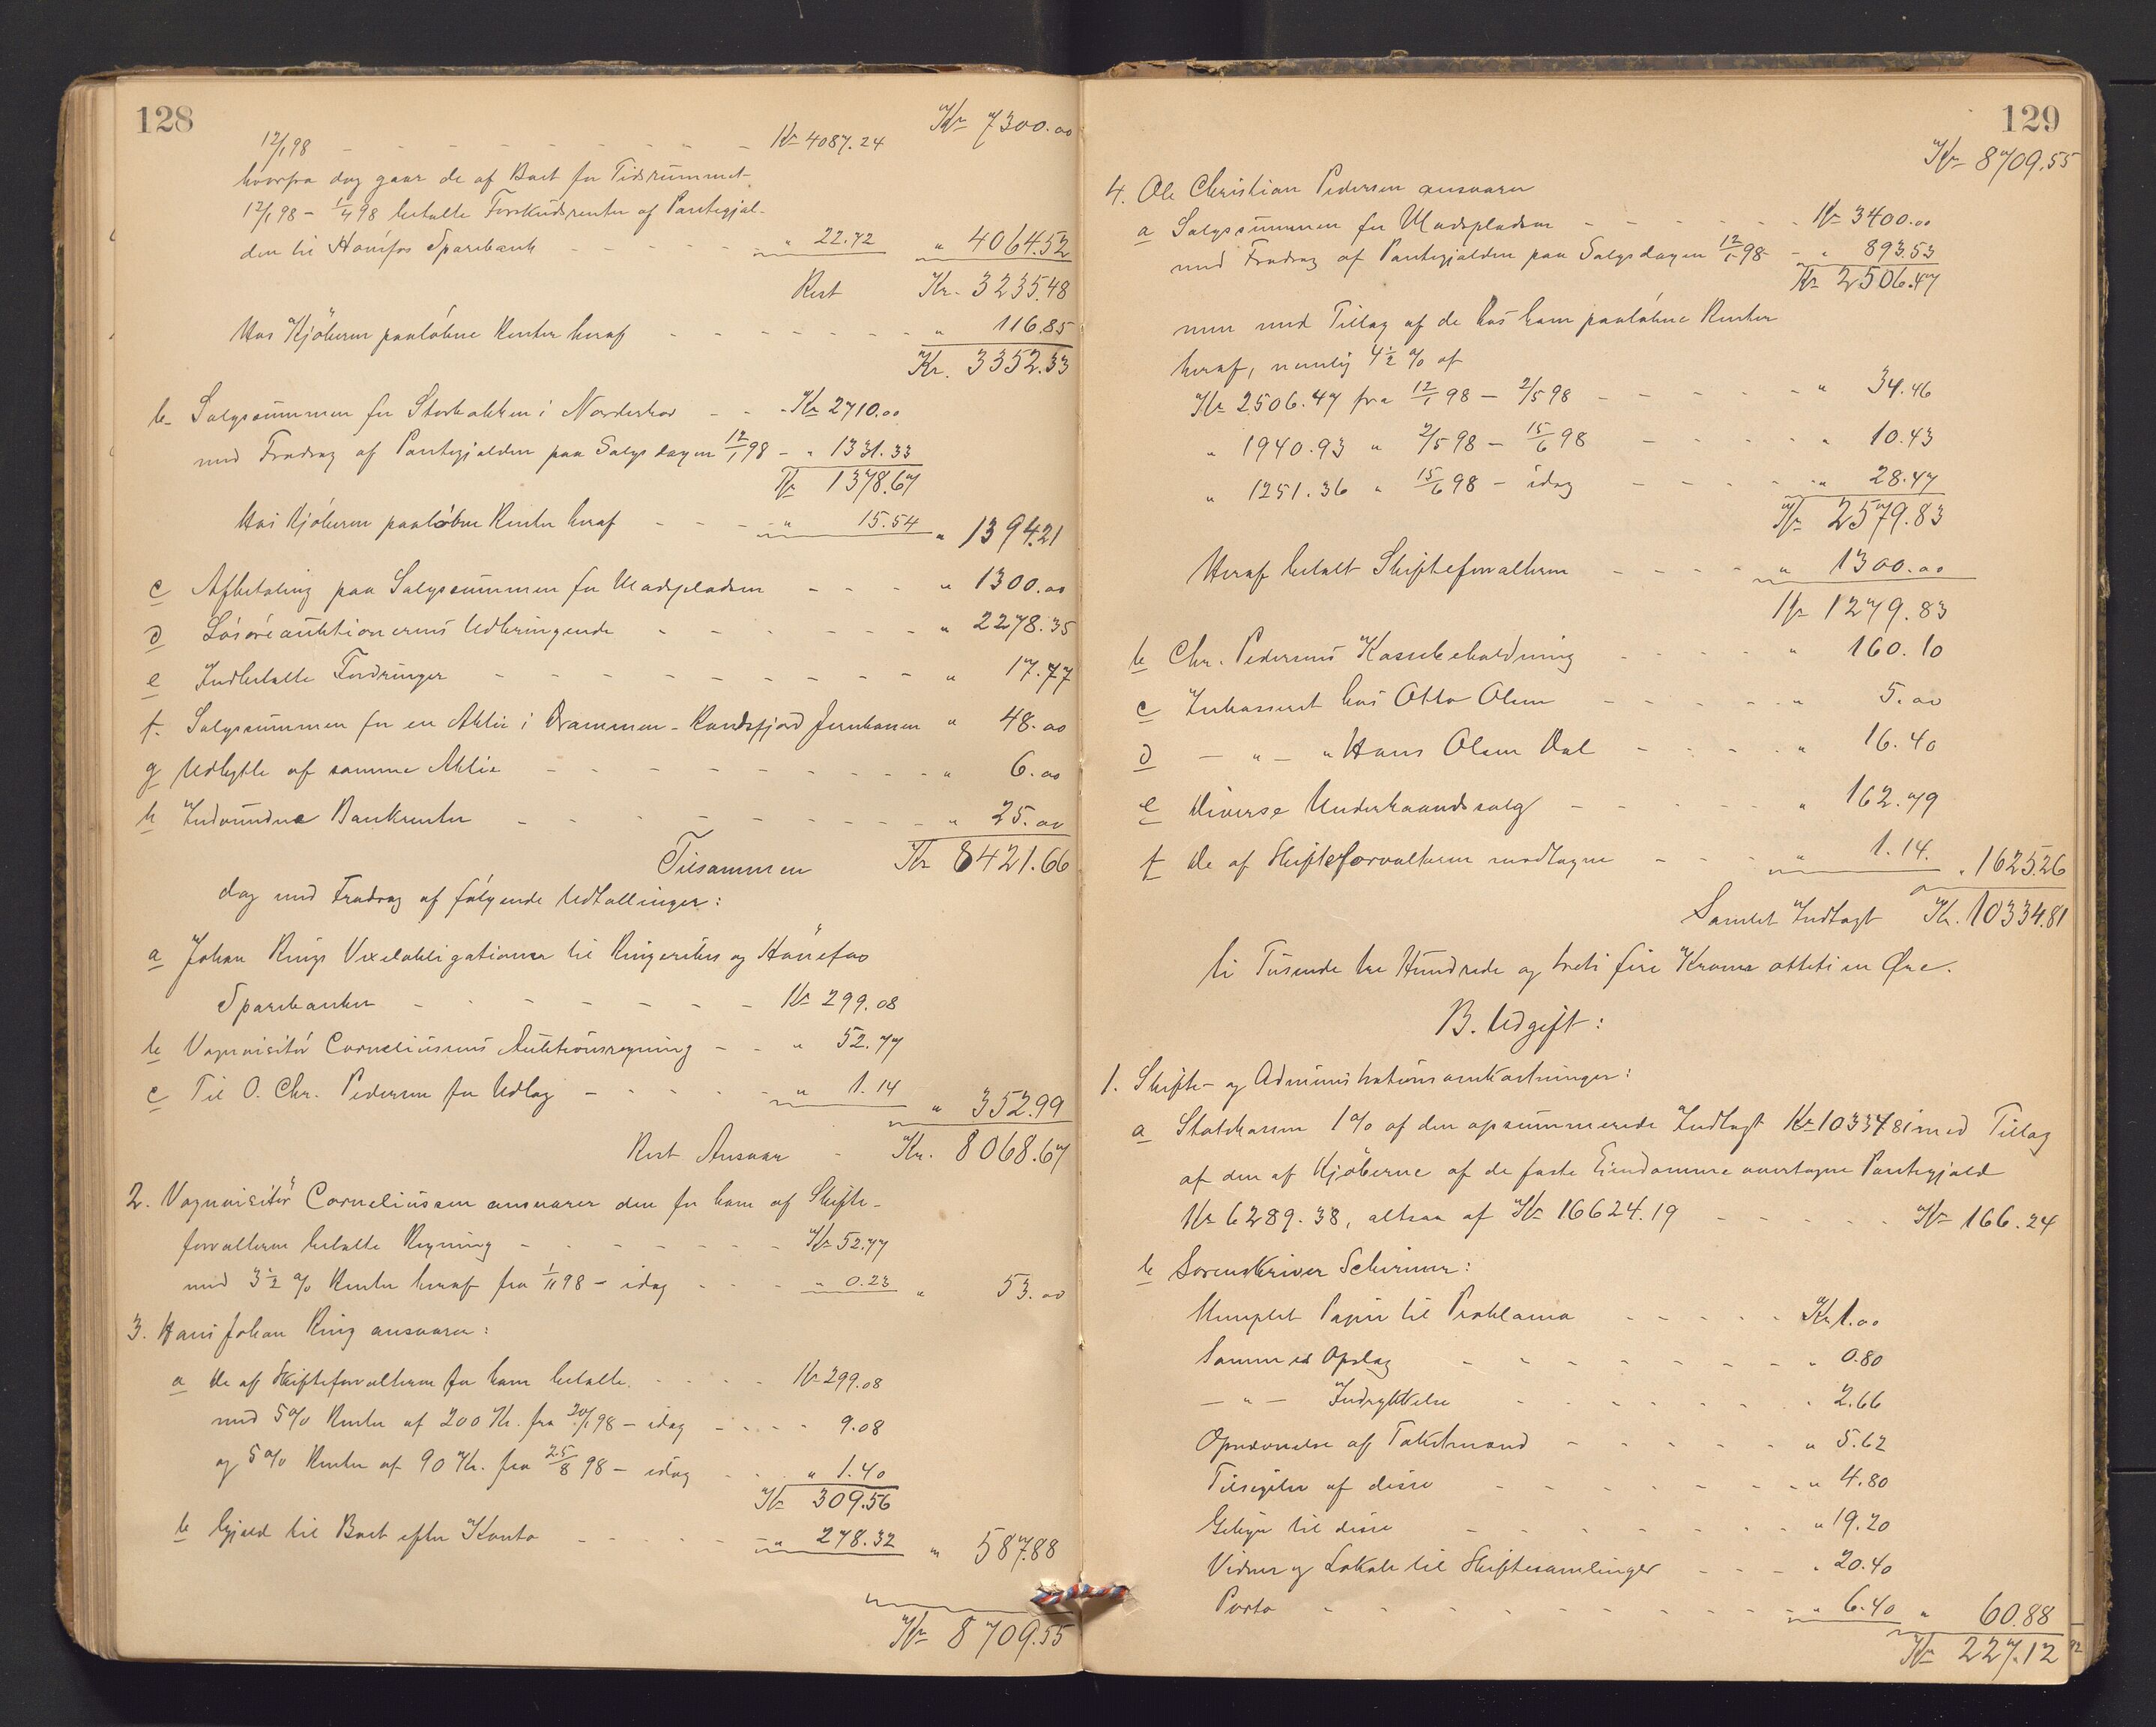 128
Kr 7300.00
12/1 98 - - - - - - - - - Kr 4087.24
hvorfra dog gaar de af Boet for Tidsrummet
12/1 98 - 1/4 98 betalte Forskudsrenter af Pantegjæl-
den til Hønefos Sparebank - - - - - " 22.72 " 4064.52
Rest Kr. 3235.48
Hos Kjøberen paaløbne Renter heraf - - - - - - - " 116.85
Kr. 3352.33
b Salgssummen for Storbakken i Norderhov - - - Kr 2710.00
med Fradrag af Pantegjælden paa Salgsdagen 12/1 98 - " 1331.33
Kr 1378.67
Hos Kjøberen paaløbne Renter heraf - - - " 15.54 " 1394.21
c Afbetaling paa Salgssummen for Madspladsen - - - " 1300.00
d Løsøreauktionernes Udbringende - - - - - - " 2278.35
e Indbetalte Fordringer - - - - - - - - " 17.77
f. Salgssummen for en Aktie i Drammen-Randsfjord Jernbanen " 48.00
g Udbytte af samme Aktie - - - - - - - - " 6.00
h Indvundne Bankrenter - - - - - - - - " 25.00
Tilsammen Kr 8421.66
dog med Fradrag af følgende Udtællinger:
a Johan Rings Vexelobligationer til Ringerikes og Hønefos
Sparebanker - - - - - - - - Kr 299.08
b Vognvisitør Corneliussens Auktionsregning - - " 52.77
c Til O. Chr. Pedersen for Udlæg - - - - - " 1.14 " 352.99
Rest Ansvar - Kr. 8068.67
2. Vognvisitør Corneliussen ansvarer den for ham af Skifte-
forvalteren betalte Regning - - - - - - - Kr 52.77
med 3 1/2 % Renter heraf fra 1/11 98 - idag - - - " 0.23 " 53.00
3. Hans Johan Ring ansvarer:
a De af Skifteforvalteren for ham betalte - - - - Kr 299.08
med 5% Renter af 200 Kr. fra 20/1 98 - idag - - - - 9.08
og 5% Renter af 90 Kr. fra 25/8 98 - idag - - " 1.40
Kr 309.56
b Gjæld til Boet efter Konto - - - - - " 278.32 " 587.88
Kr 8709.55
129
Kr 8709.55
4. Ole Christian Pedersen ansvarer
a Salgssummen for Madspladsen - - - - - - Kr 3400.00
med Fradrag af Pantegjælden paa Salgsdagen 12/1 98 - " 893.53
Kr 2506.47
men med Tillæg af de hos ham paaløbne Renter
heraf, nemlig 4 1/2 % af
Kr 2506.47 fra 12/1 98 - 2/5 98 - - - - - " 34.46
" 1940.93 " 2/5 98 - 15/6 98 - - - - - " 10.43
" 1251.36 " 15/6 98 - idag - - - - - " 28.47
Kr 2579.83
Heraf betalt Skifteforvalteren - - - - " 1300.00
Kr 1279.83
b Chr. Pedersens Kassebeholdning - - - - - " 160.10
c Inkasseret hos Otto Olsen - - - - - " 5.00
d - " - " Hans Olsen Dal - - - - " 16.40
e Diverse Underhaandssalg - - - - - " 162.79
f De af Skifteforvalteren modtagne - - - " 1.14. " 1625.26
Samlet Indtægt Kr. 10334.81
ti Tusende tre Hundrede og treti fire Kroner otteti en Øre.
B. Udgift:
1. Skifte- og Administrationsomkostninger:
a Statskassen 1% af den opsummerede Indtægt Kr 10334.81 med Tillæg
af den af Kjøberne af de faste Eiendomme overtagne Pantegjæld
Kr 6289.38, altsaa af Kr 16624.19 - - - - - Kr 166.24
b Sorenskriver Schirmer:
Stemplet Papir til Proklama - - - - - Kr 1.00
Sammes Opslag - - - - - - - - " 0.80
- " - Indrykkelse - - - - - - " 2.66
Opnævnelse af Takstmænd - - - - - " 5.62
Tilsigelse af disse - - - - - - - " 4.80
Gebyr til disse - - - - - - - " 19.20
Vidner og Lokale til Skiftesamlinger - - - " 20.40
Porto - - - - - - - - - - " 6.40 " 60.88
Kr 227.12